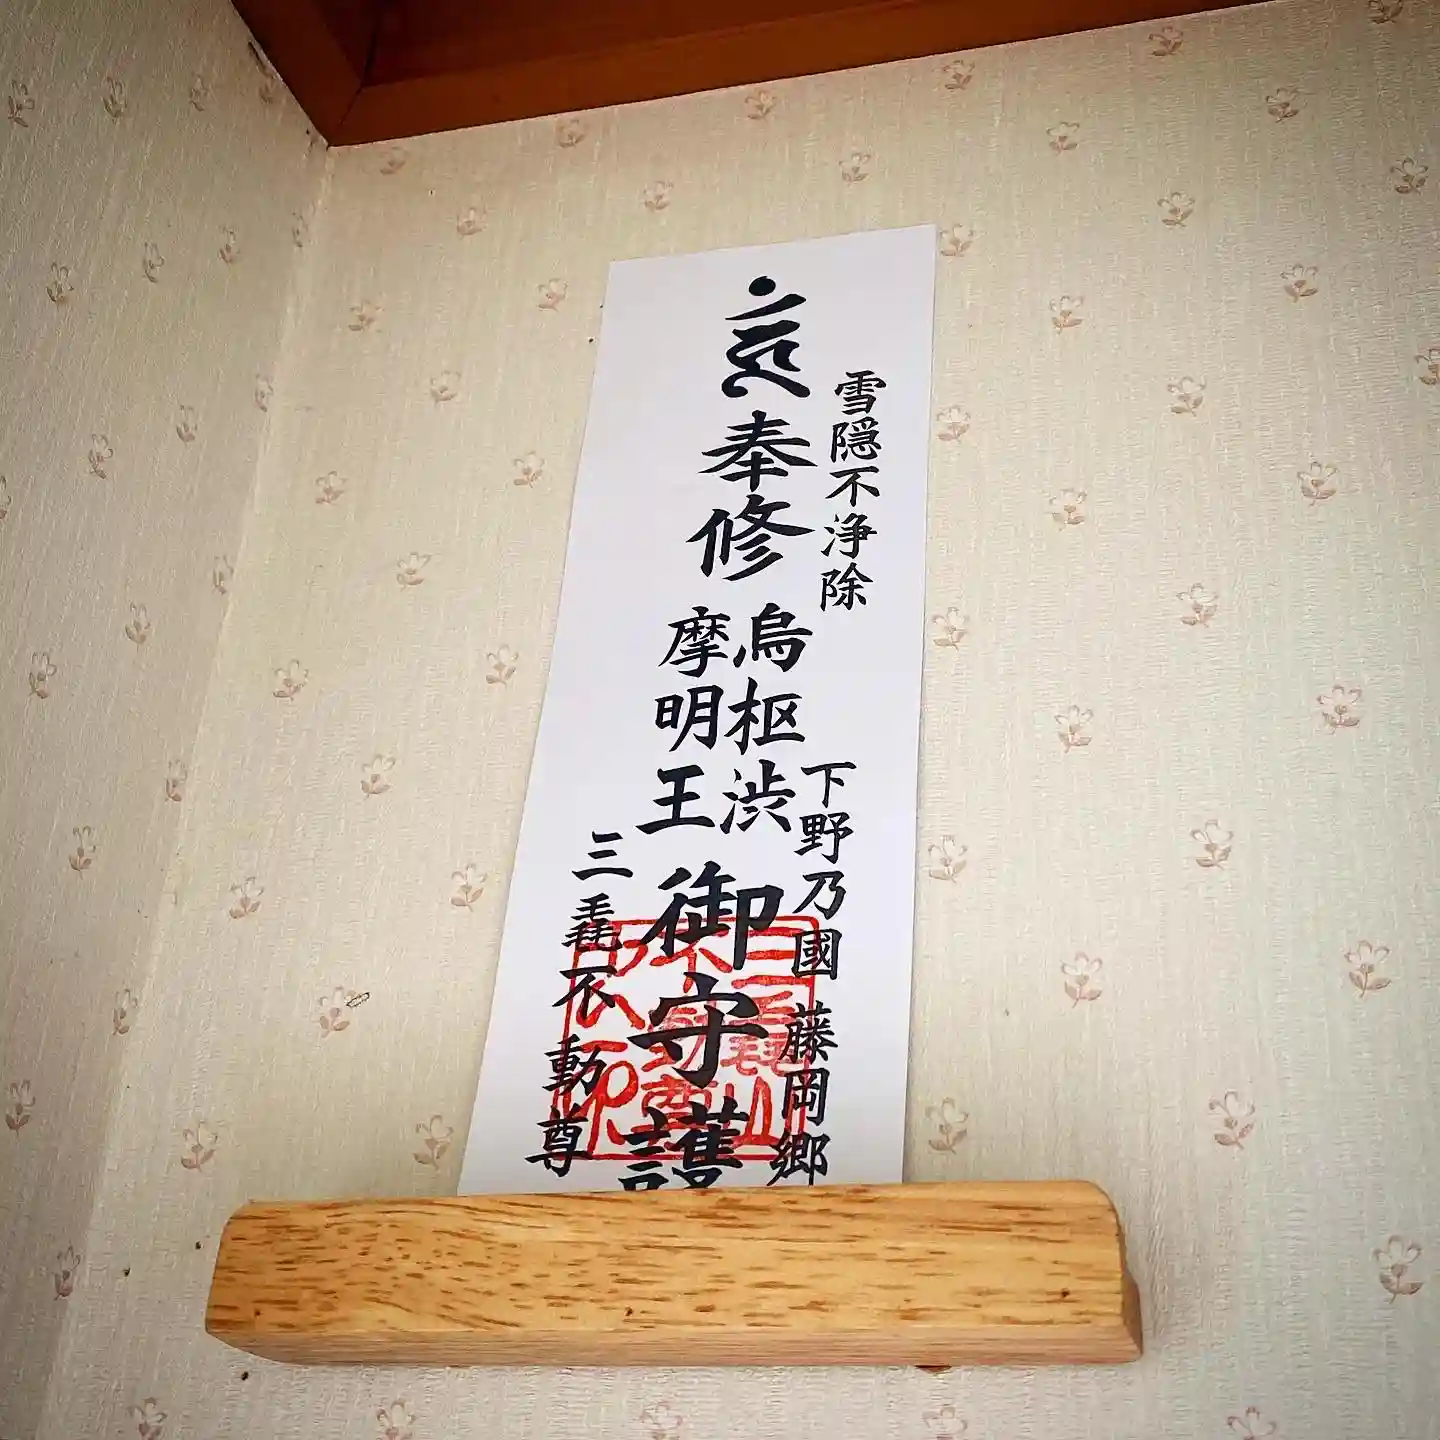 雪隠不浄除
下野乃國 藤岡郷
奉修
烏枢渋
摩明王
御守護
三毳不動尊
三毳山
不動尊